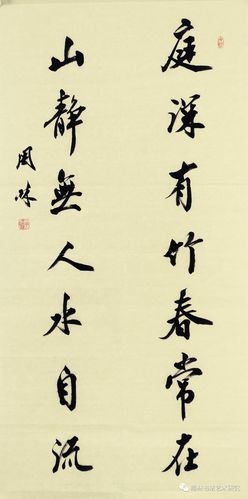 庭深有竹春常在
山静無人水自流
周斌